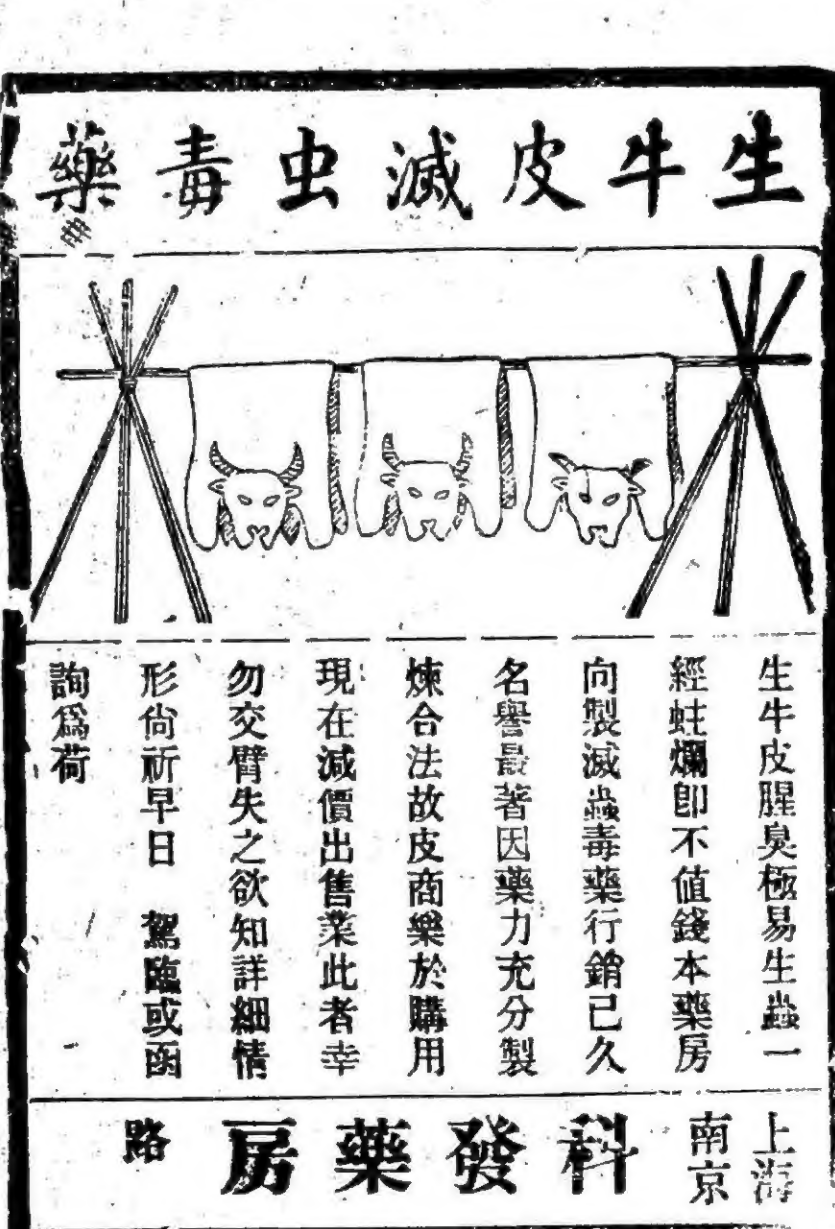 生牛皮滅虫毒藥
生牛皮腥臭極易生蟲一
經蛀爛卽不值錢本藥房
向製滅蟲毒藥行銷已久
名譽最著因藥力充分製
煉合法故皮商樂於購用
現在減價出售業此者幸
勿交臂失之欲知詳細情
形尙祈早日 駕臨或函
詢爲荷
上海
南京
科發藥房
路